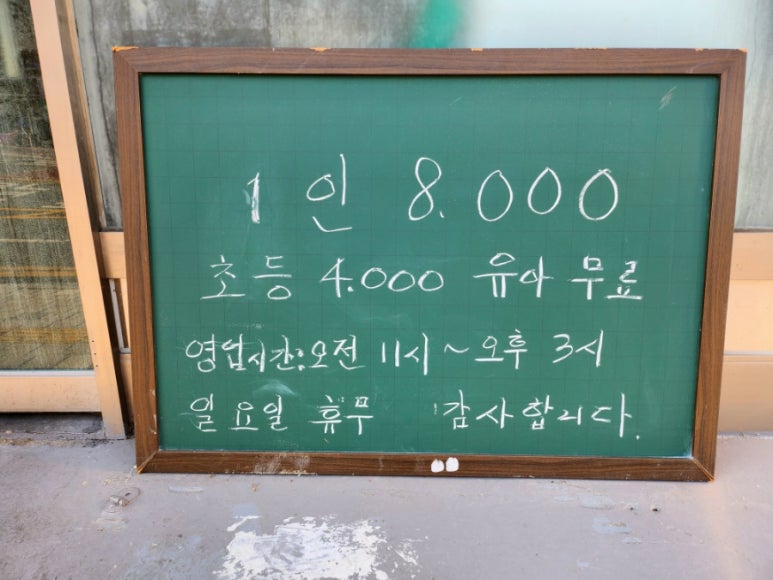 1인 8.000
초등 4.000 유아 무료
영업시간:오전 11시~오후 3시
일요일 휴무 감사합니다.